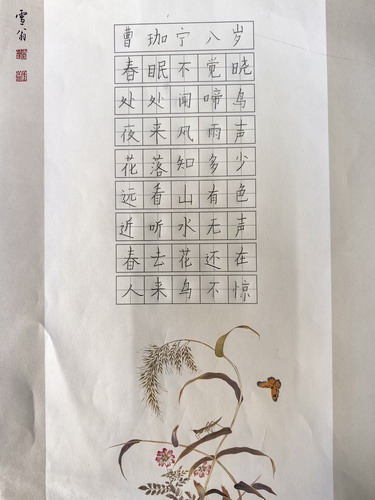 雪翁
曹珈宁八岁
春眠不觉晓
处处闻啼鸟
夜来风雨声
花落知多少
远看山有色
近听水无声
春去花还在
人来鸟不惊